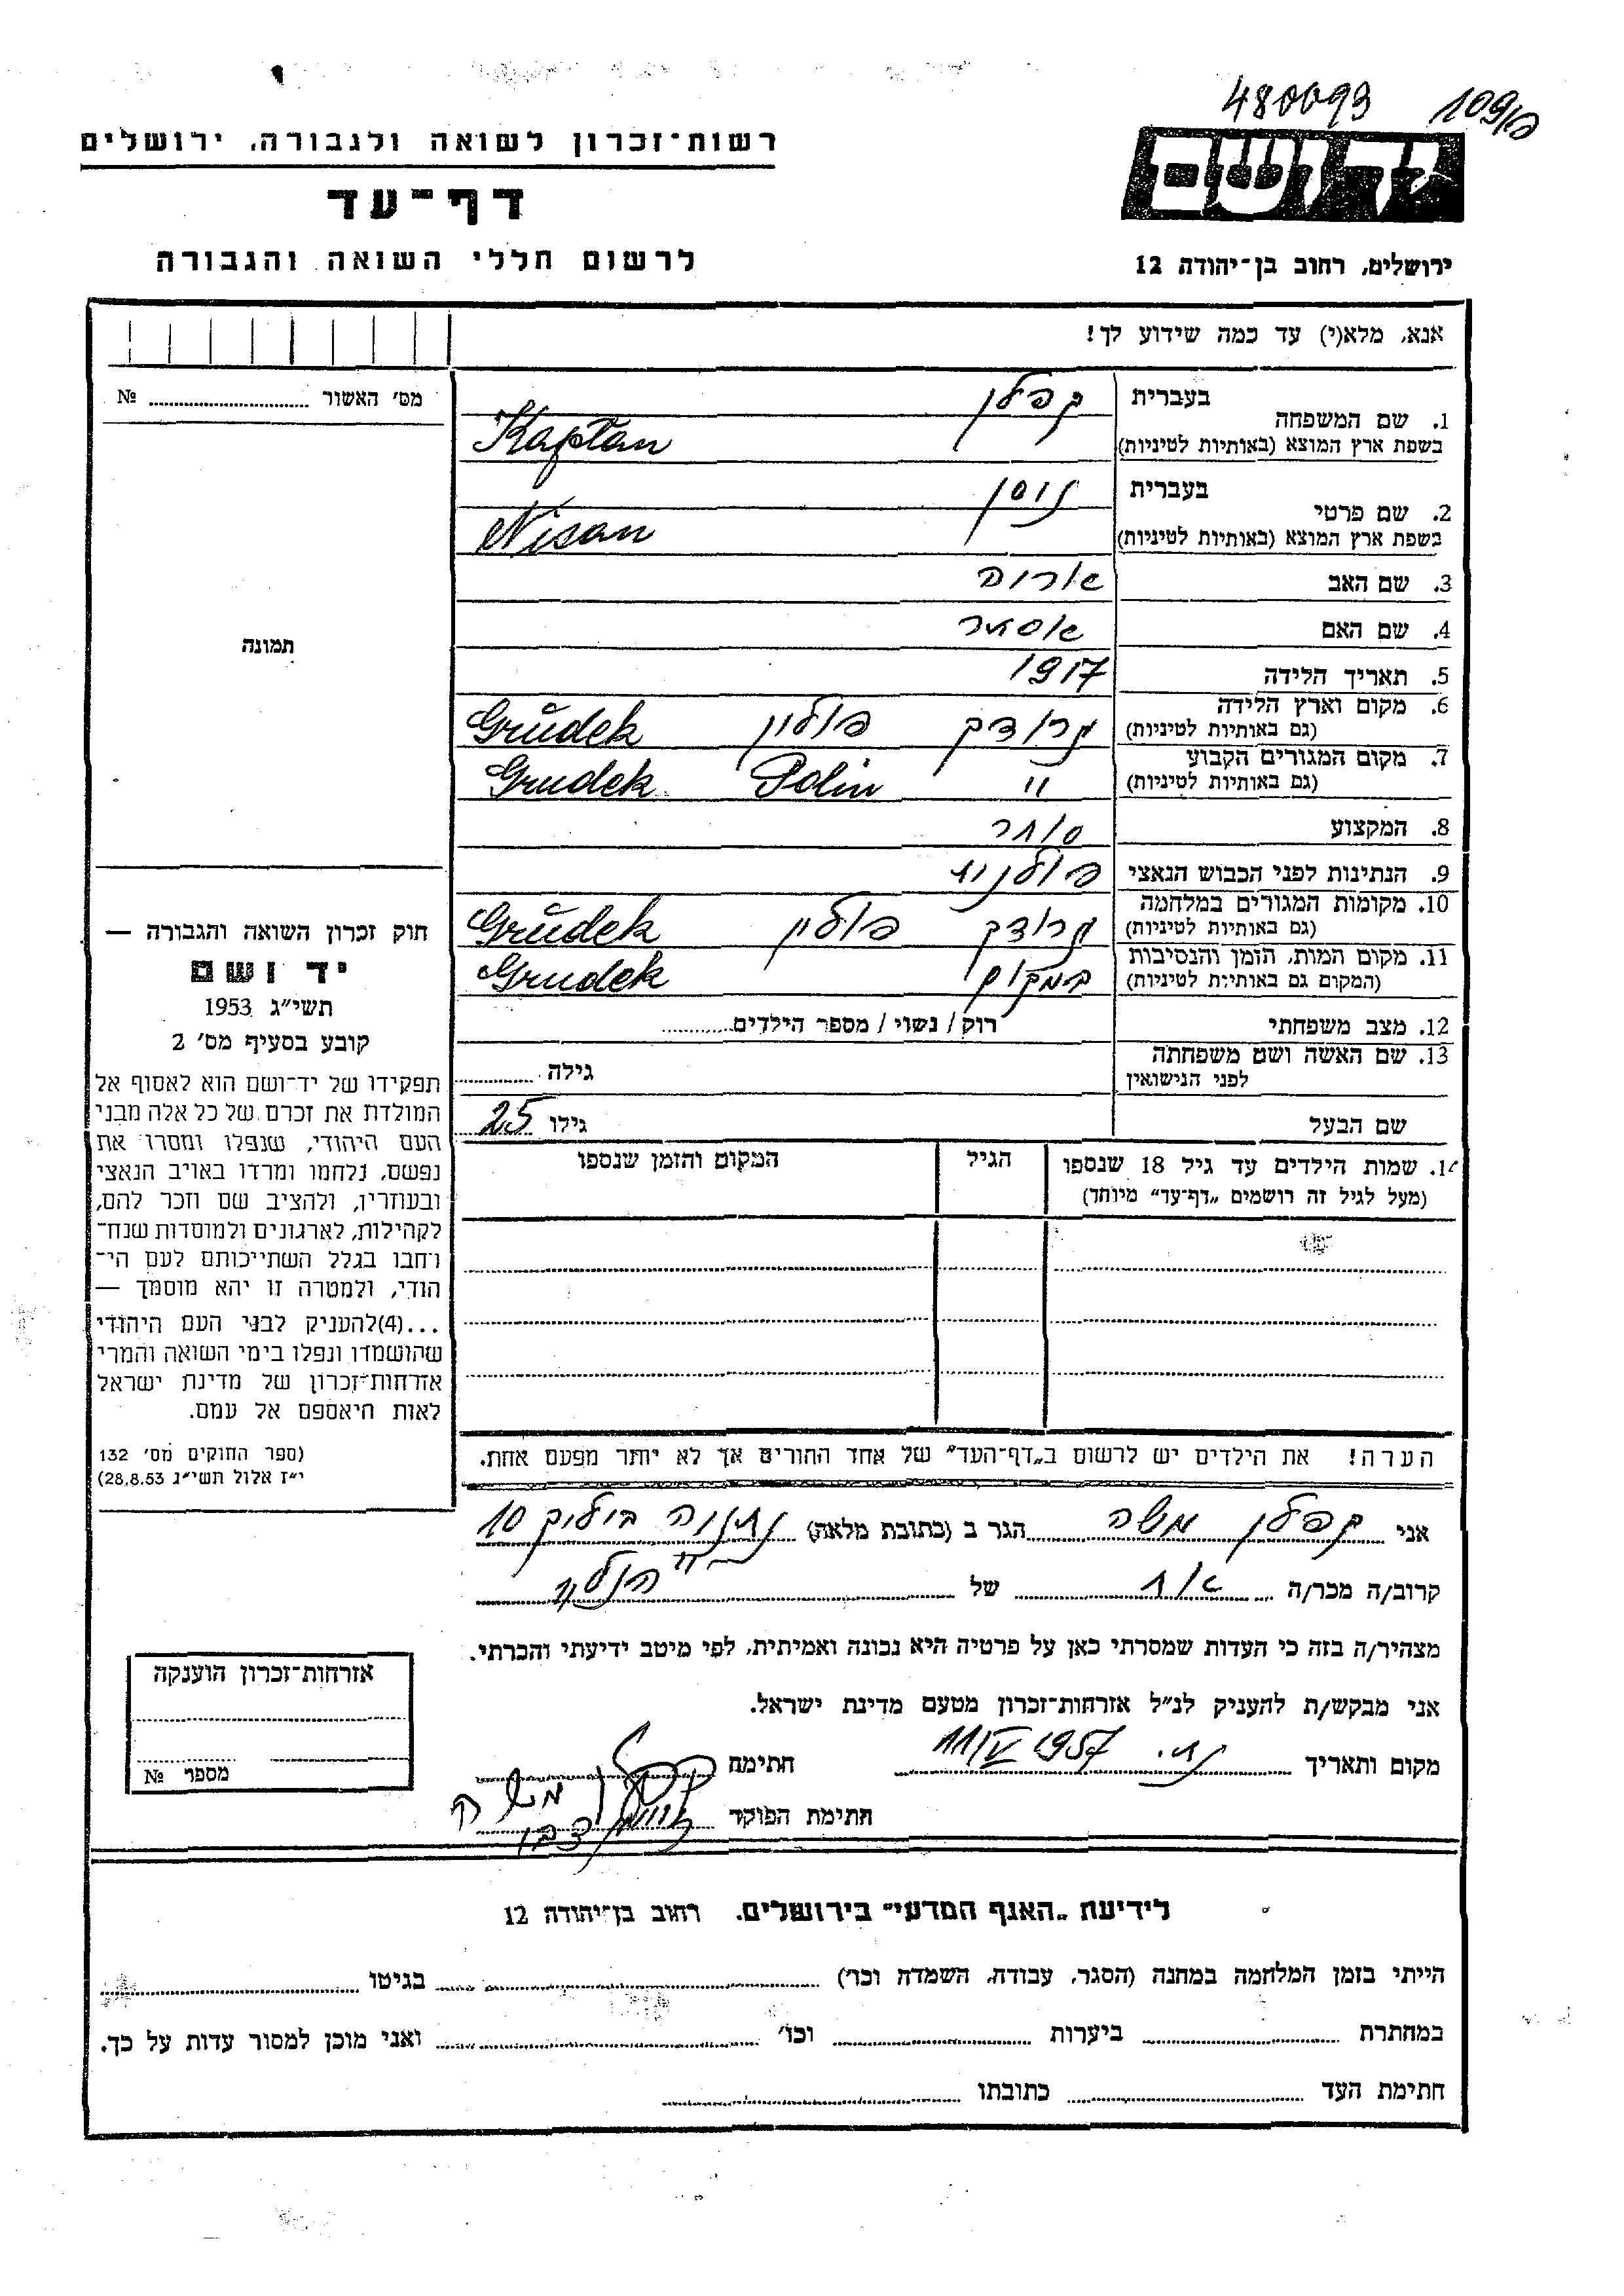 480093
רשות־זכרון לשואה ולגבורה, ירושלים
דף־עד
לרשום חללי השואה והגבורה
יד ושם
ירושלים, רחוב בן־יהודה 12
אנא, מלא(י) עד כמה שידוע לך!
מס' האשור ........ №
תמונה
חוק זכרון השואה והגבורה —
יד ושם
תשי״ג 1953
קובע בסעיף מס' 2
תפקידו של יד־ושם הוא לאסוף אל
המולדת את זכרם של כל אלה מבני
העם היהודי, שנפלו ומסרו את
נפשם, נלחמו ומרדו באויב הנאצי
ובעוזריו, ולהציב שם וזכר להם,
לקהילות, לארגונים ולמוסדות שנח־
רחבו בגלל השתייכותם לעם הי־
הודי, ולמטרה זו יהא מוסמך —
...(4)להעניק לבני העם היהודי
שהושמדו ונפלו בימי השואה והמרי
אזרחות־זכרון של מדינת ישראל
לאות היאספם אל עמם.
(ספר החוקים מס' 132
י״ז אלול תשי״ג 28.8.53)
בעברית קפלן
1. שם המשפחה
בשפת ארץ המוצא (באותיות לטיניות) Kaplan
בעברית ניסן
2. שם פרטי
בשפת ארץ המוצא (באותיות לטיניות) Nisan
3. שם האב
4. שם האם אסתר
5. תאריך הלידה 1917
6. מקום וארץ הלידה גרודק פולין Grŭdek
(גם באותיות לטיניות)
7. מקום המגורים הקבוע " Polin Grudek
(גם באותיות לטיניות)
8. המקצוע סוחר
9. הנתינות לפני הכבוש הנאצי פולנית
10. מקומות המגורים במלחמה גרודק פולין Grŭdek
(גם באותיות לטיניות)
11. מקום המות, הזמן והנסיבות במקום Grudek
(המקום גם באותיות לטיניות)
12. מצב משפחתי רוק / נשוי / מספר הילדים........
13. שם האשה ושם משפחתה
לפני הנישואין גילה ........
שם הבעל גילו 25
14. שמות הילדים עד גיל 18 שנספו הגיל המקום והזמן שנספו
(מעל לגיל זה רושמים „דף־עד״ מיוחד)
הערה! את הילדים יש לרשום ב„דף־העד״ של אחד ההורים אך לא יותר מפעם אחת.
אני קפלן משה הגר ב (כתובת מלאה) נתניה ביליק 10
קרוב/ה מכר/ה אח של
מצהיר/ה בזה כי העדות שמסרתי כאן על פרטיה היא נכונה ואמיתית, לפי מיטב ידיעתי והכרתי.
אני מבקש/ת להעניק לנ״ל אזרחות־זכרון מטעם מדינת ישראל.
מקום ותאריך נת. 11/V 1957 חתימה קפלן משה
חתימת הפוקד
אזרחות־זכרון הוענקה
מספר №
לידיעת „האגף המדעי״ בירושלים. רחוב בן־יהודה 12
הייתי בזמן המלחמה במחנה (הסגר, עבודה, השמדה וכו') ........ בגיטו ........
במחתרת ........ ביערות ........ וכו' ........ ואני מוכן למסור עדות על כך.
חתימת העד ........ כתובתו ........